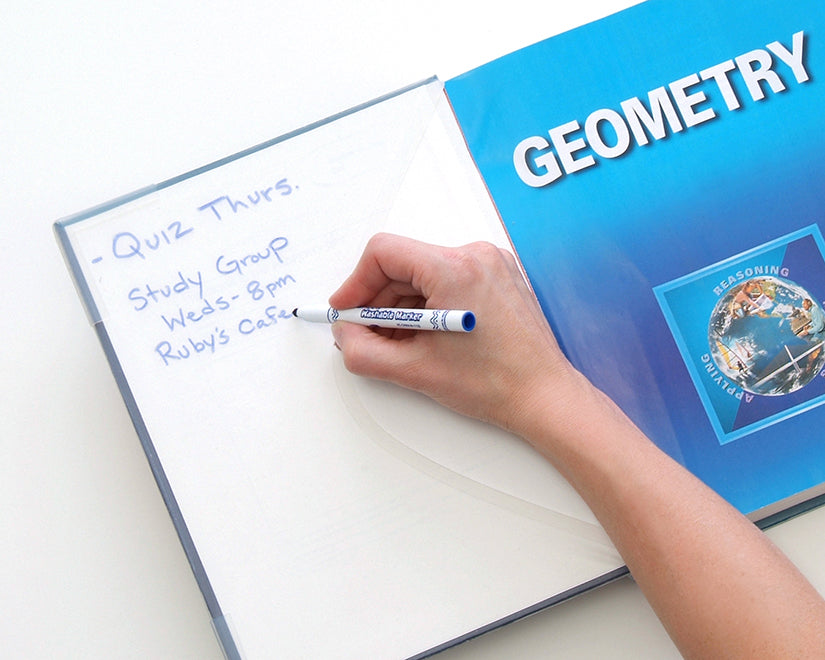 - Quiz Thurs.
Study Group
Weds - 8pm
Ruby's Cafe
Washable Marker
GEOMETRY
REASONING
APPLYING